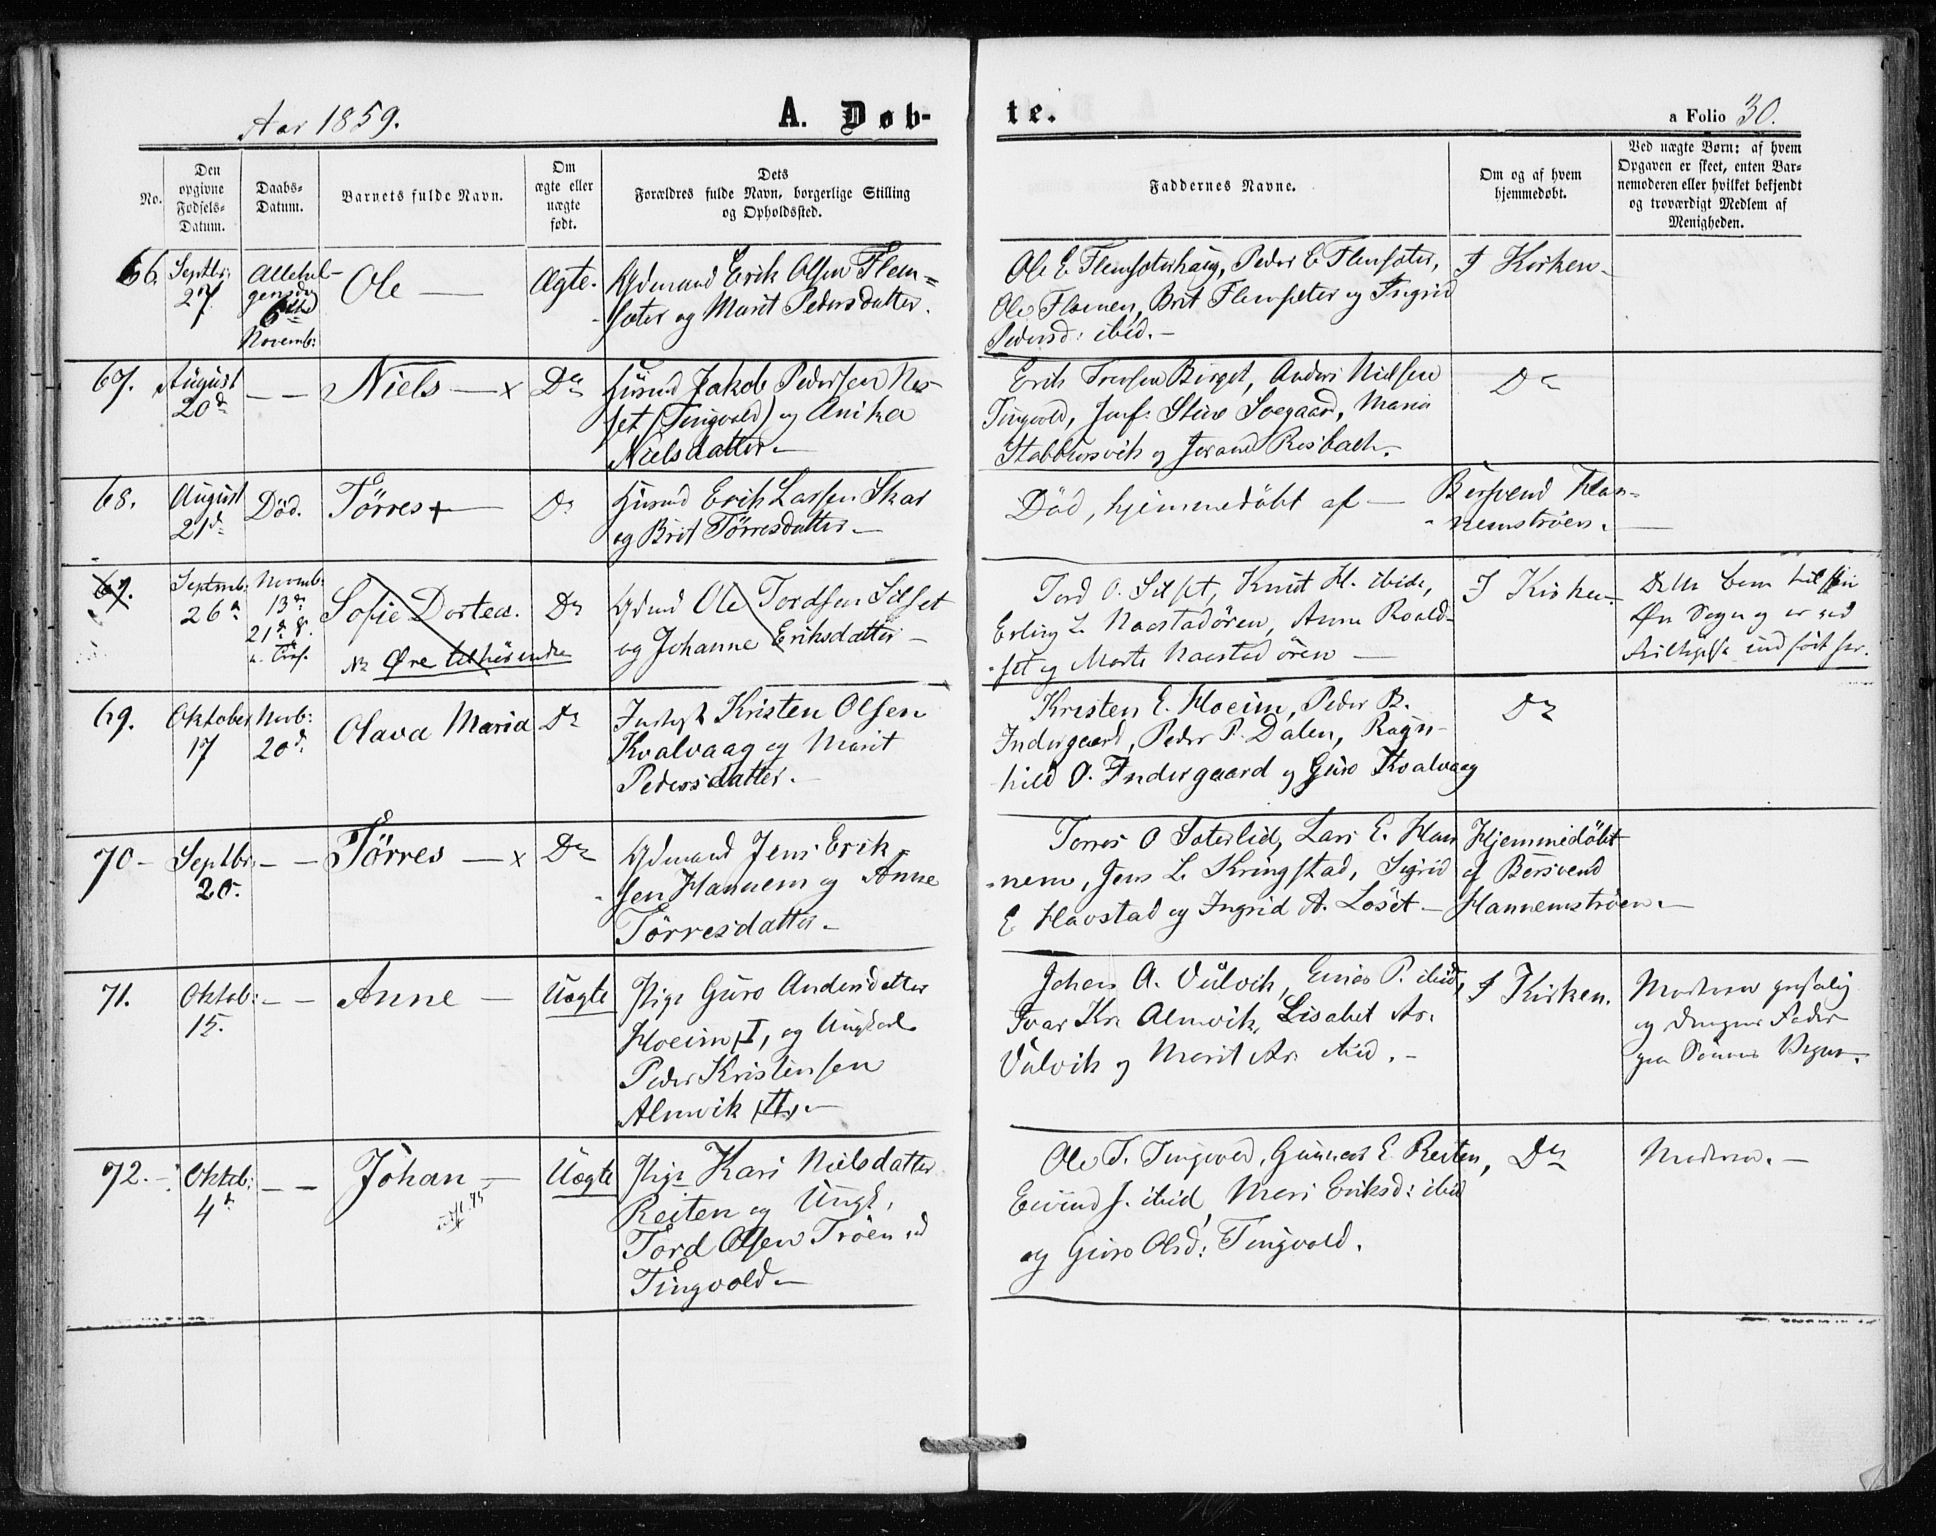 Aar 1859.
A. Døb-
te.
a Folio 30.
No.
Den opgivne Fødsels-Datum.
Daabs-Datum.
Barnets fulde Navn.
Om ægte eller uægte født.
Dets Forældres fulde Navn, borgerlige Stilling og Opholdssted.
Faddernes Navne.
Om og af hvem hjemmedøbt.
Ved uægte Børn: af hvem Opgaven er skeet, enten Barnemoderen eller hvilket bekjendt og troværdigt Medlem af Menigheden.
66.
Septbr:
27
Allehel-
gensdag
6te
Novemb:
Ole —
Ægte.
Gdmand Erik Olsen Flem-
sæter og Marit Pedersdatter.
Ole E Flemsæterhaug, Peder E Flemsæter,
Ole Flemmen, Brit Flemsæter og Ingrid
Pedersd: ibid. —
I Kirken
67.
August
20d
— —
Niels — x
Do
Husmd Jakob Pedersen Nes-
set (Tingvold) og Anika
Nielsdatter —
Erik Iversen Birget, Anders Nielsen
Tingvold, Jmf: Stine Soegaard, Maria
Stabbursvik og Jorand Risbach.
Do
68.
August
21d
Død.
Tørres + —
Do
Husmd Erik Larsen Skar
og Brit Tørresdatter —
Død, hjemmedøbt af —
Bersvend Han-
nemstrøen. —
69.
Septemb:
26d
Novemb:
13de
21d S.
e. Tref.
Sofie Dortea.
Øre tilhørende
Do
Gdmd Ole Tordsen Silset
og Johanne Eriksdatter —
Tord O. Silset, Knut H. ibid,
Erling L. Naestadøren, Anne Roald-
set og Marte Naestadøren —
I Kirken
Dette Barn
Øre Sogn og er ved
indført her.
69.
Oktober
17
Novb:
20d
Olava Maria
Do
Inderst Kristen Olsen
Kvalvaag og Marit
Pedersdatter. —
Kristen E. Hoeim, Peder B.
Indergaard, Peder P. Dalen, Ragn-
hild O. Indergaard og Guro Kvalvaag
Do
70 —
Septbr:
20.
— —
Tørres — x
Do
Gdmand Jens Erik-
sen Hannem og Anne
Tørresdatter —
Torres O Sæterlid, Lars E. Han
nem, Jens L. Kringstad, Sigrid
E Havstad og Ingrid A. Löset —
Hjemmedøbt
af Bersvend
Hannemstrøen. —
71.
Oktob:
15.
— —
Anne —
Uægte
Pige Guro Andersdatter
Hoeim /I, og Ungkarl
Peder Kristensen
Almvik /II/. —
Johan A. Vulvik, Einar P. ibid,
Ivar Kr. Almvik, Lisabet Ar.
Vulvik og Marit Ar. ibid. —
I Kirken.
Moderen
og Drengens Fader
paa Sønnens Vegne.
72. —
Oktob:
4d
— —
Johan —
Uægte
Pige Kari Nielsdatter
Reiten og Ungk.
Tord Olsen Trøen
Tingvold —
Ole T. Tingvold, Gunnar E. Reiten,
Eivind J. ibid, Mari Eriksd: ibid
og Guro Olsd: Tingvold.
Do
Moderen. —